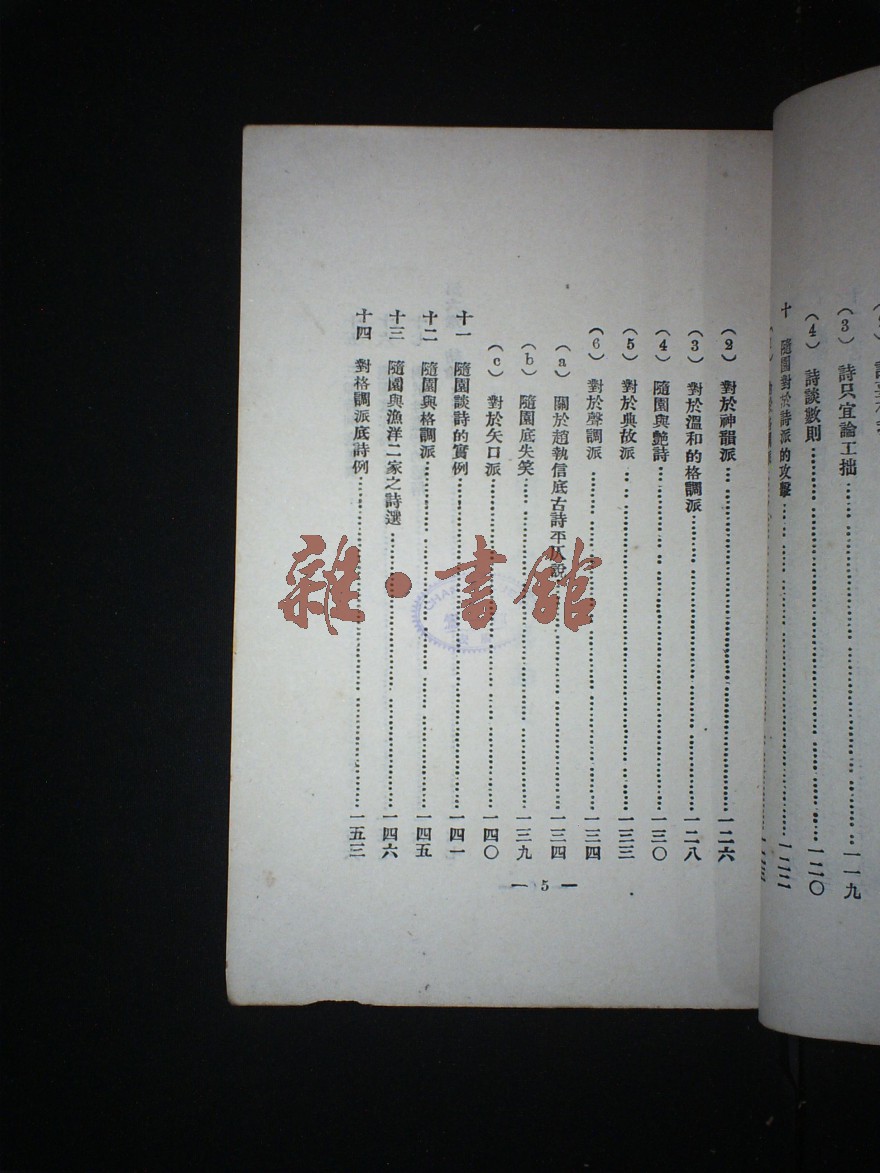 (3) 詩只宜論工拙……一一九
(4) 詩談數則……一二〇
十 隨園對於詩派的攻擊……一二二
(2) 對於神韻派……一二六
(3) 對於溫和的格調派……一二八
(4) 隨園與艷詩……一三〇
(5) 對於典故派……一三三
(6) 對於聲調派……一三四
(a) 關於趙執信底古詩平仄說……一三四
(b) 隨園底失笑……一三九
(c) 對於矢口派……一四〇
十一 隨園談詩的實例……一四一
十二 隨園與格調派……一四五
十三 隨園與漁洋二家之詩選……一四六
十四 對格調派底詩例……一五三
— 5 —
雜·書館